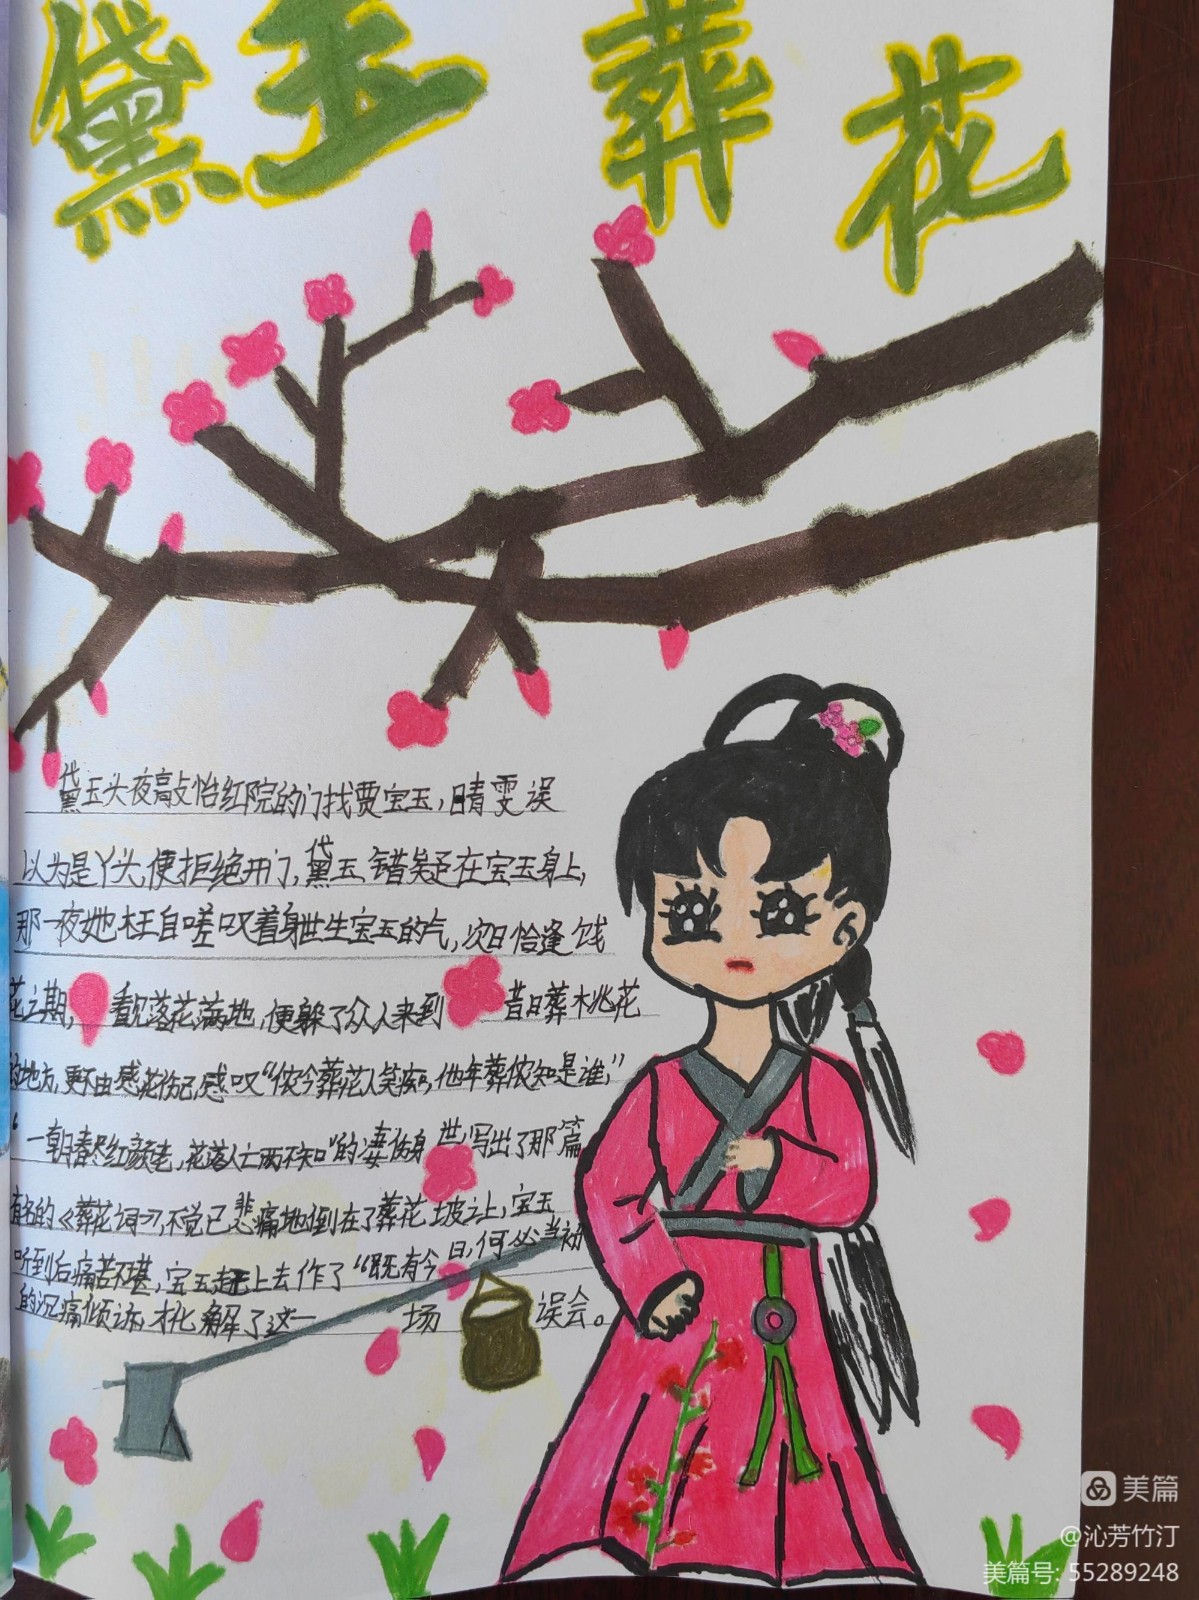 黛玉葬花
黛玉头夜敲怡红院的门找贾宝玉，晴雯误
以为是丫头，便拒绝开门，黛玉错疑在宝玉身上，
那一夜她枉自嗟叹着身世生宝玉的气，次日恰逢饯
花之期，看见落花满地，便躲了众人来到昔日葬桃花
的地方，更不由感花伤己，感叹“侬今葬花人笑痴，他年葬侬知是谁，”
“一朝春尽红颜老，花落人亡两不知”的凄伤身世，写出了那篇
有名的《葬花词》，不觉已悲痛地倒在了葬花坡上，宝玉
听到后痛苦不堪，宝玉赶上去作了“既有今日，何必当初
的沉痛倾诉，才化解了这一场误会。
美篇
@沁芳竹汀
美篇号: 55289248